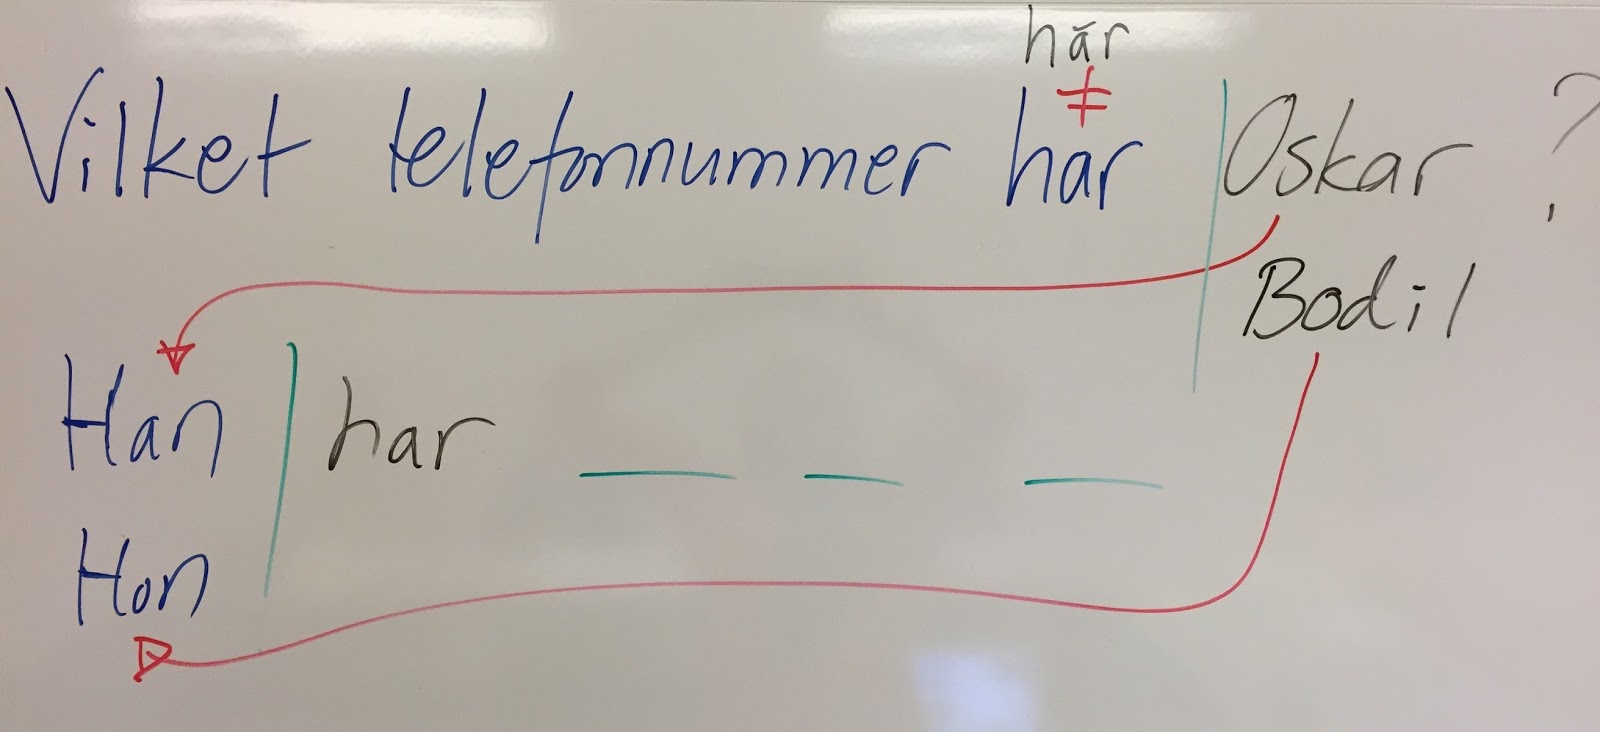 här
≠
Vilket telefonnummer har | Oskar ?
Bodil
Han | har ___ __ ___
Hon